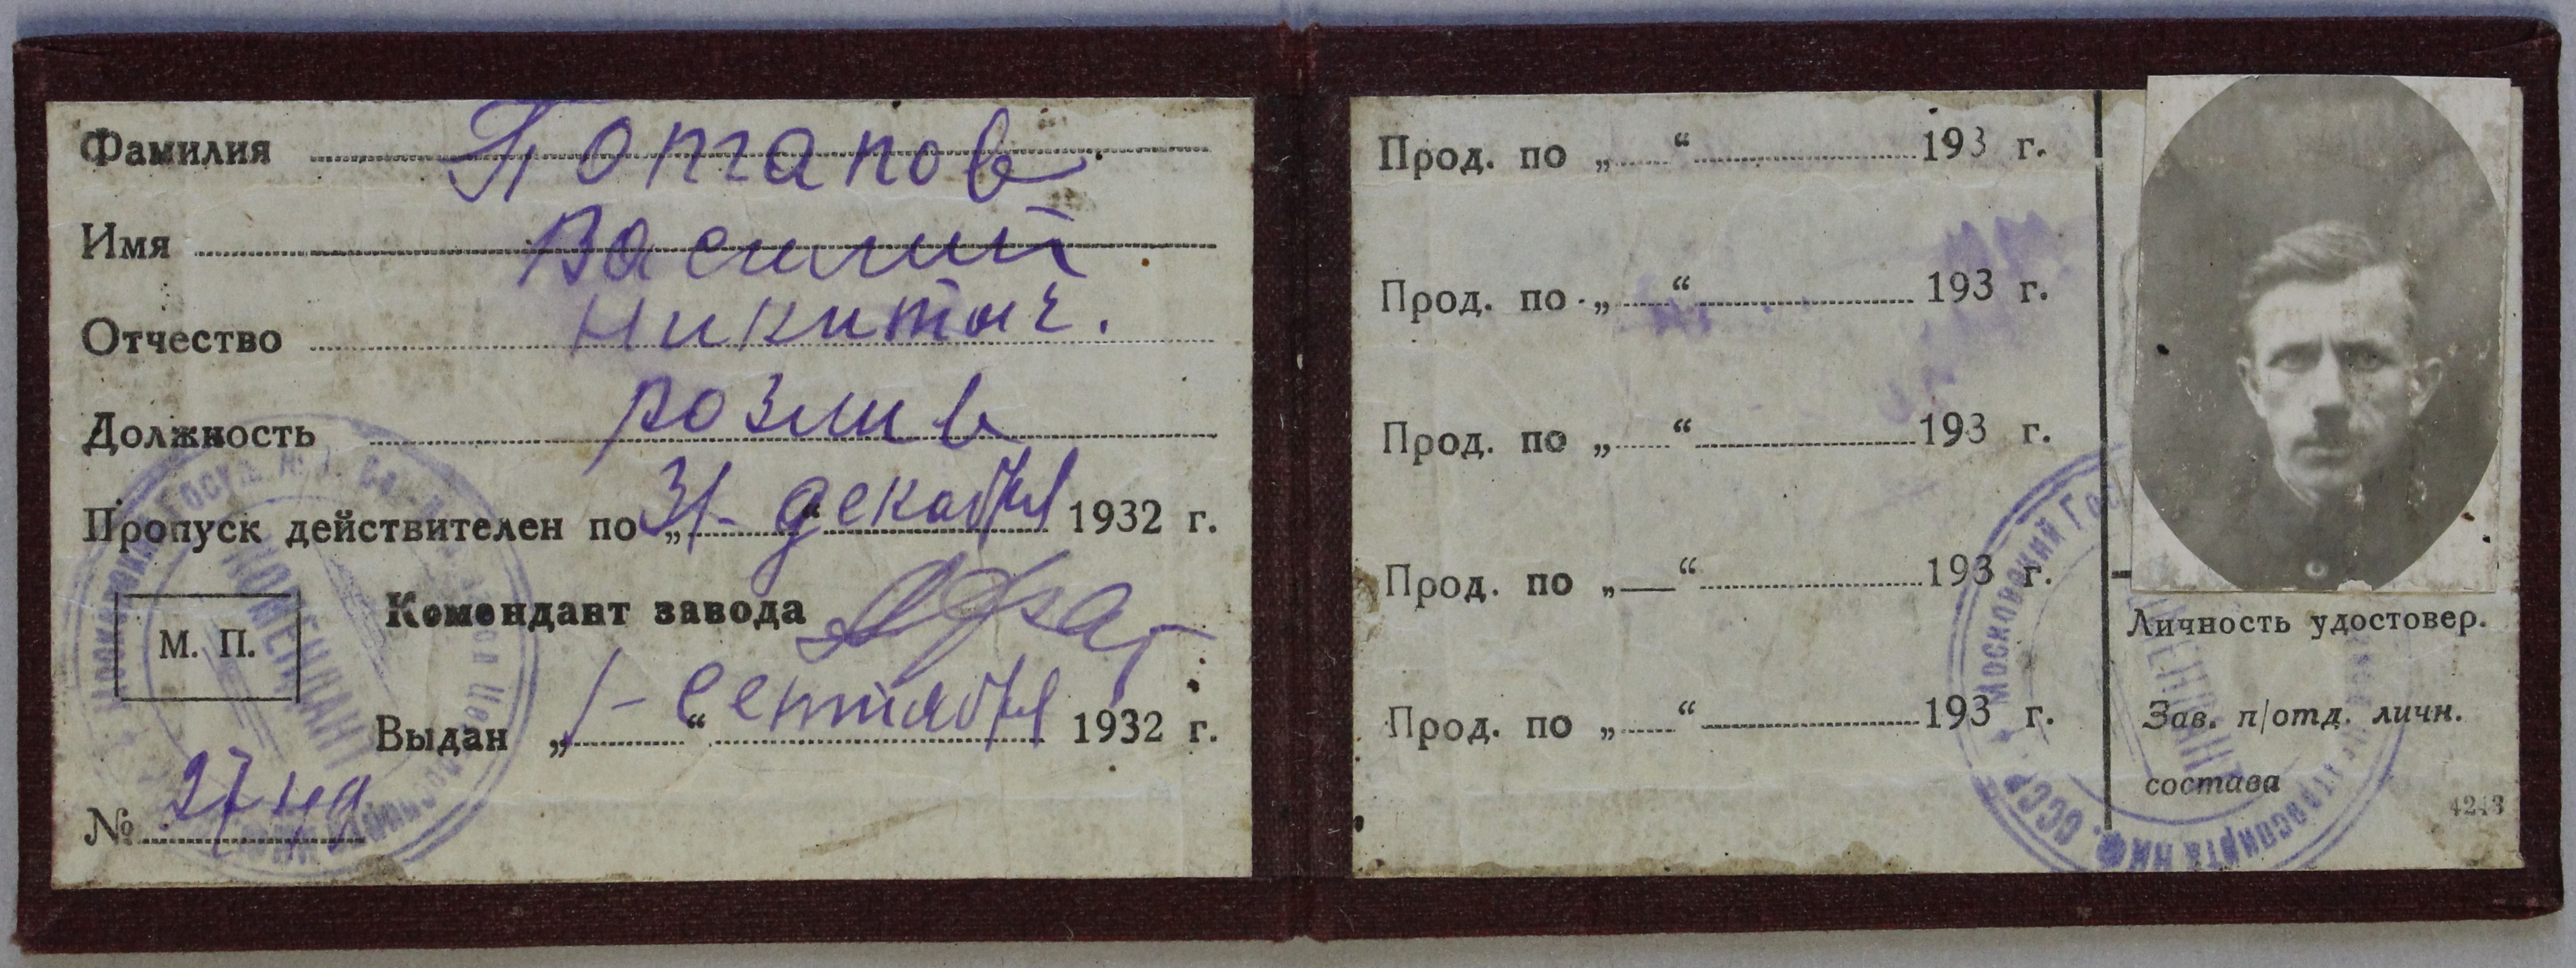 Фамилия Потапов
Имя Василий
Отчество Никитич.
Должность розлив
Пропуск действителен по „31- “ декабря 1932 г.
Комендант завода
М. П.
КОМЕНДАНТ
Выдан „1- “ сентября 1932 г.
№
Прод. по „ “ 193 г.
Прод. по „ “ 193 г.
Прод. по „ “ 193 г.
Прод. по „ “ 193 г.
Прод. по „ “ 193 г.
Личность удостовер.
Зав. п/отд. личн.
состава
Московский Гос
СССР
4243